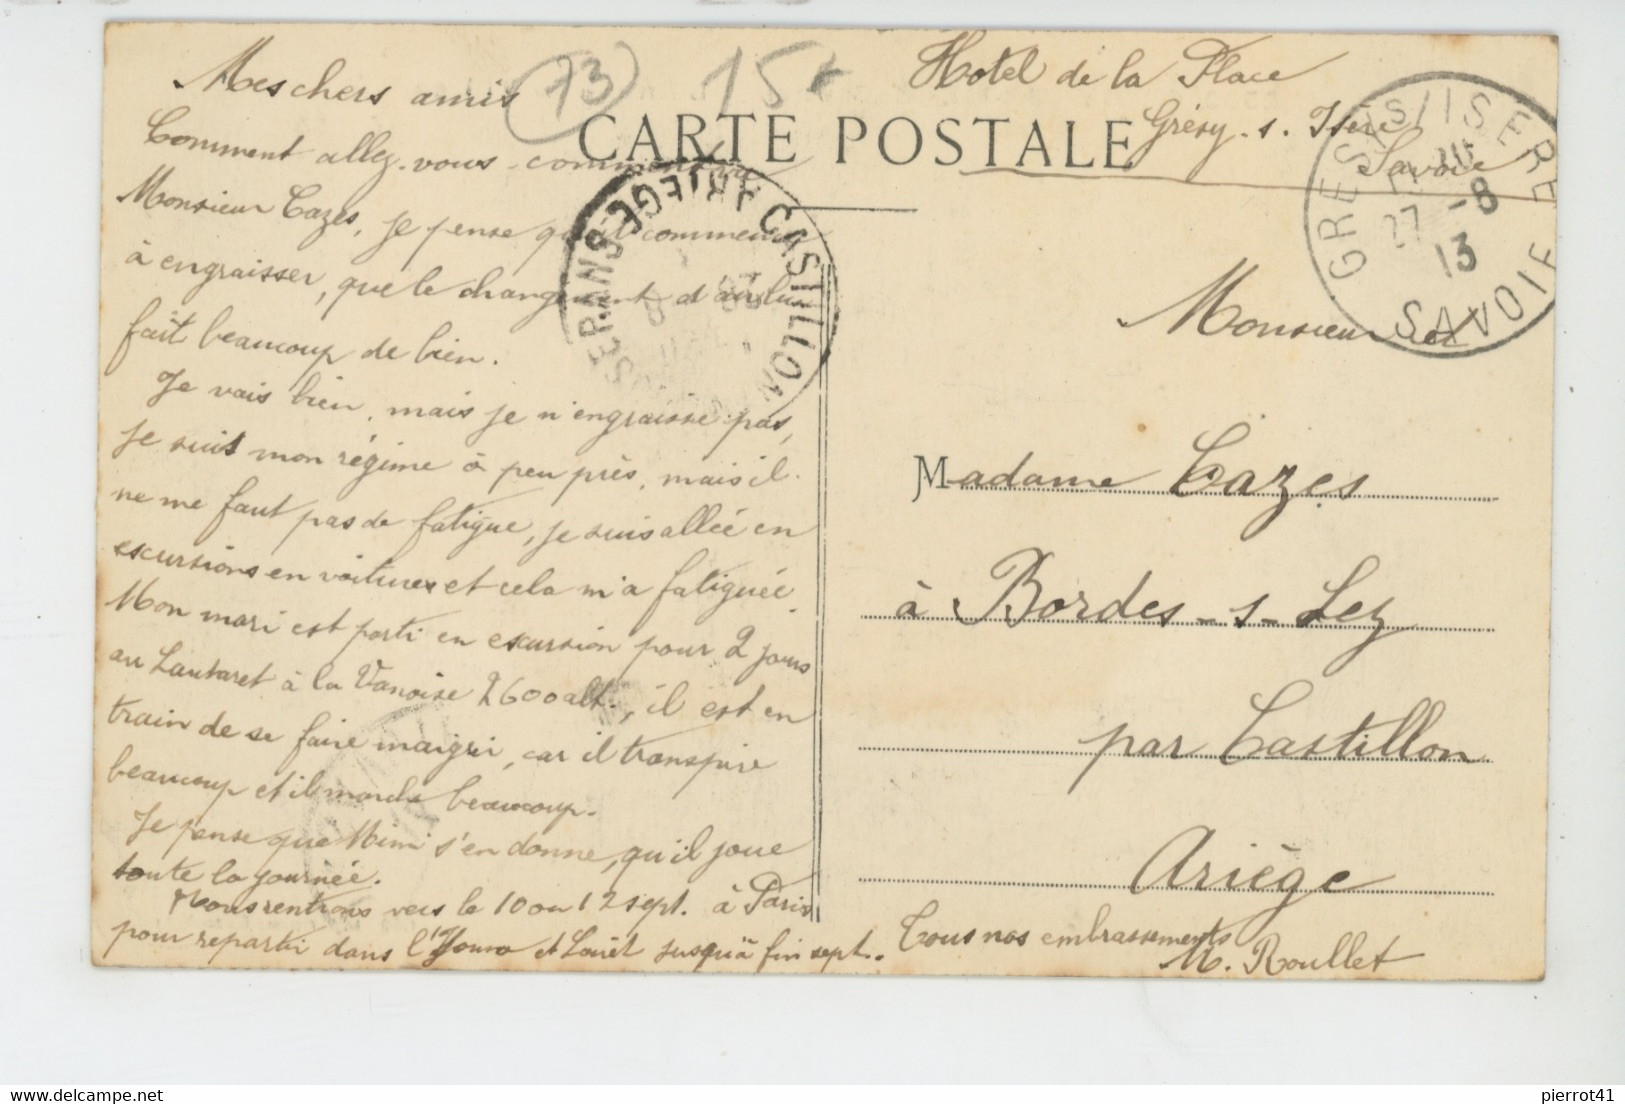 73
15+
Hotel de la Place
Grésy-s. Isère
Savoie
CARTE POSTALE
GRESY S/ ISERE
27-8
13
SAVOIE
CASTILLON
ARIEGE
Mes chers amis
Comment allez-vous - comment va
Monsieur Cazes, je pense qu'il commence
à engraisser, que le changement d'air lui
fait beaucoup de bien.
Je vais bien, mais je n'engraisse pas,
je suis mon régime à peu près, mais il
ne me faut pas de fatigue, je suis allée en
excursions en voitures et cela m'a fatiguée.
Mon mari est parti en excursion pour 2 jours
au Lautaret à la Vanoise 2600 alt., il est en
train de se faire maigrir, car il transpire
beaucoup et il marche beaucoup.
Je pense que Mimi s'en donne, qu'il joue
toute la journée.
Nous rentrons vers le 10 ou 12 sept. à Paris
pour repartir dans l'Yonne et Loiret jusqu'à fin sept.
Monsieur et
Madame Cazes
à Bordes-s-Lez
par Castillon
Ariège
Tous nos embrassements
M. Roullet
pierrot41